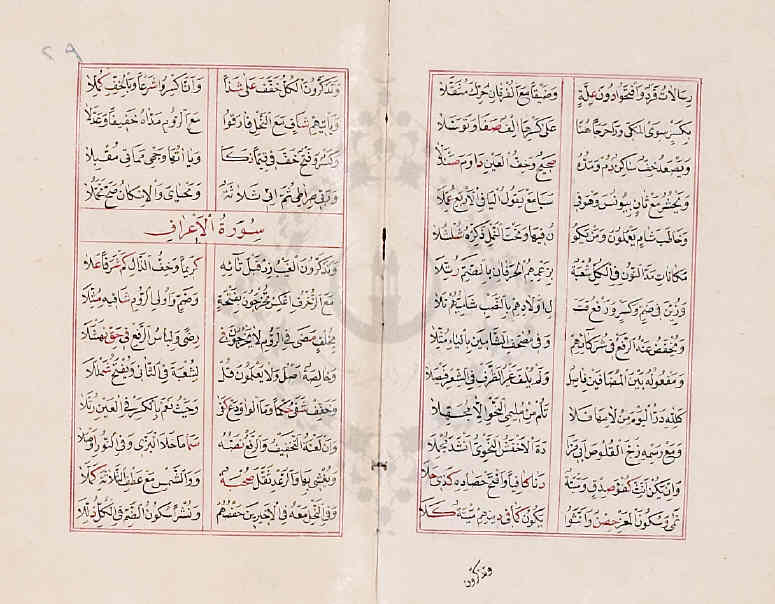 رسالات فرد وافتحوا دون علة وضيقا مع الفرقان حرك مثقلا
بكسر سوى المكي ورا حرجا هنا على كسرها إلف صفا وتوسلا
ويصعد خف ساكن دم ومده صحيح وخف العين داوم صندلا
ونحشر مع ثان بيونس وهو في سبا مع نقول اليا في الاربع عملا
وخاطب شام يعملون ومن تكو ن فيها وتحت النمل ذكره شلشلا
مكانات مد النون في الكل شعبة بزعمهم الحرفان بالضم رتلا
وزين في ضم وكسر ورفع قتـ ـل اولادهم بالنصب شاميهم تلا
ويخفض عنه الرفع في شركائهم وفي مصحف الشامين بالياء مثلا
ومفعوله بين المضافين فاصل ولم يلف غير الظرف في الشعر فيصلا
كلله در اليوم من لامها فلا تلم من مليمي النحو الا مجهلا
ومع رسمه زج القلوص ابي مزا دة الاخفش النحوي انشد مجملا
وان يكن انث كفؤ صدق وميتة دنا كافيا وافتح حصاد كذي حلا
نمى وسكون المعز حصن وانثوا يكون كما في دينهم ميتة كلا
وتذكرون
٢٩
وتذكرون الكل خفف على شذا وان اكسروا شرعا وبالخف كملا
ويأتيهم شاف مع النحل فارقوا مع الروم مداه خفيفا وعدلا
وكسر وفتح خف في قيما ذكا ويا اتها وجهي مماتي مقبلا
وربي صراطي ثم اني ثلاثة ومحياي والاسكان صح تحملا
سورة الاعراف
وتذكرون الغيب زد قبل تائه كريما وخف الذال كم شرفا علا
مع الزخرف اعكس تخرجون بفتحة وضم واولى الروم شافيه مثلا
بخلف مضى في الروم لا يخرجون في رضى ولباس الرفع في حق نهشلا
وخالصة اصل ولا يعلمون قل لشعبة في الثاني ويفتح شمللا
وخفف شفى حكما وما الواو دع كفى وحيث نعم بالكسر في العين رتلا
وان لعنة التخفيف والرفع نصه سما ما خلا البزي وفي النور اوصلا
ويغشي بها والرعد ثقل صحبة ووالشمس مع عطف الثلاثة كملا
وفي النحل معه في الاخيرين حفصهم ونشرا سكون الضم في الكل ذللا